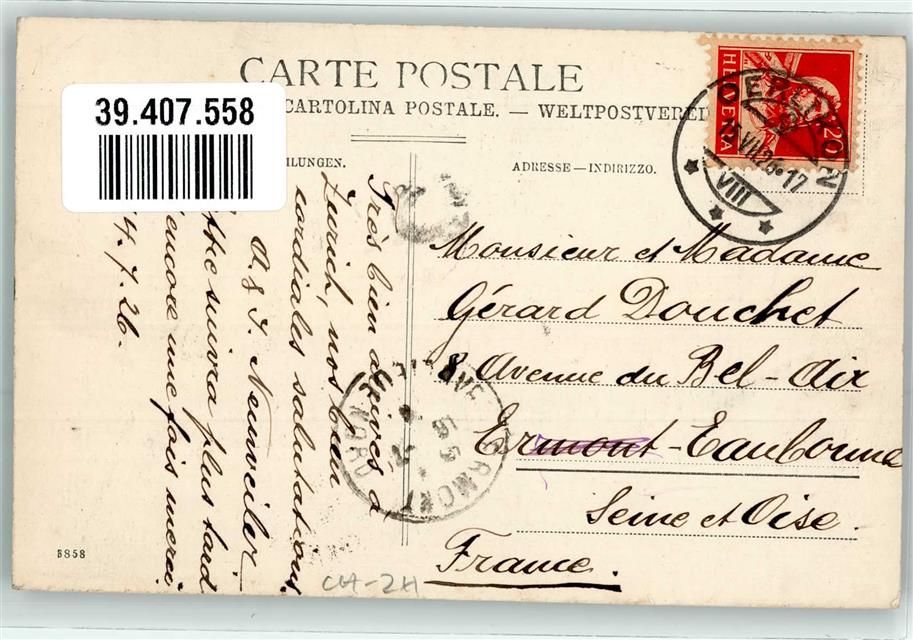 CARTE POSTALE
39.407.558
CARTOLINA POSTALE. — WELTPOSTVEREI
ILUNGEN.
ADRESSE—INDIRIZZO.
HELVETIA
20
OERLIKON
15.VII.26-17
VIII
Très bien arrivés à
Zurich, nos bien
cordiales salutations
A. & J. Neuweiler
suivra plus tard
encore une fois merci
4.7.26.
Monsieur et Madame
Gérard Douchet
8 Avenue du Bel-Air
Ermont-Eaubonne
Seine et Oise.
France.
ERMONT
B858
CH-ZH